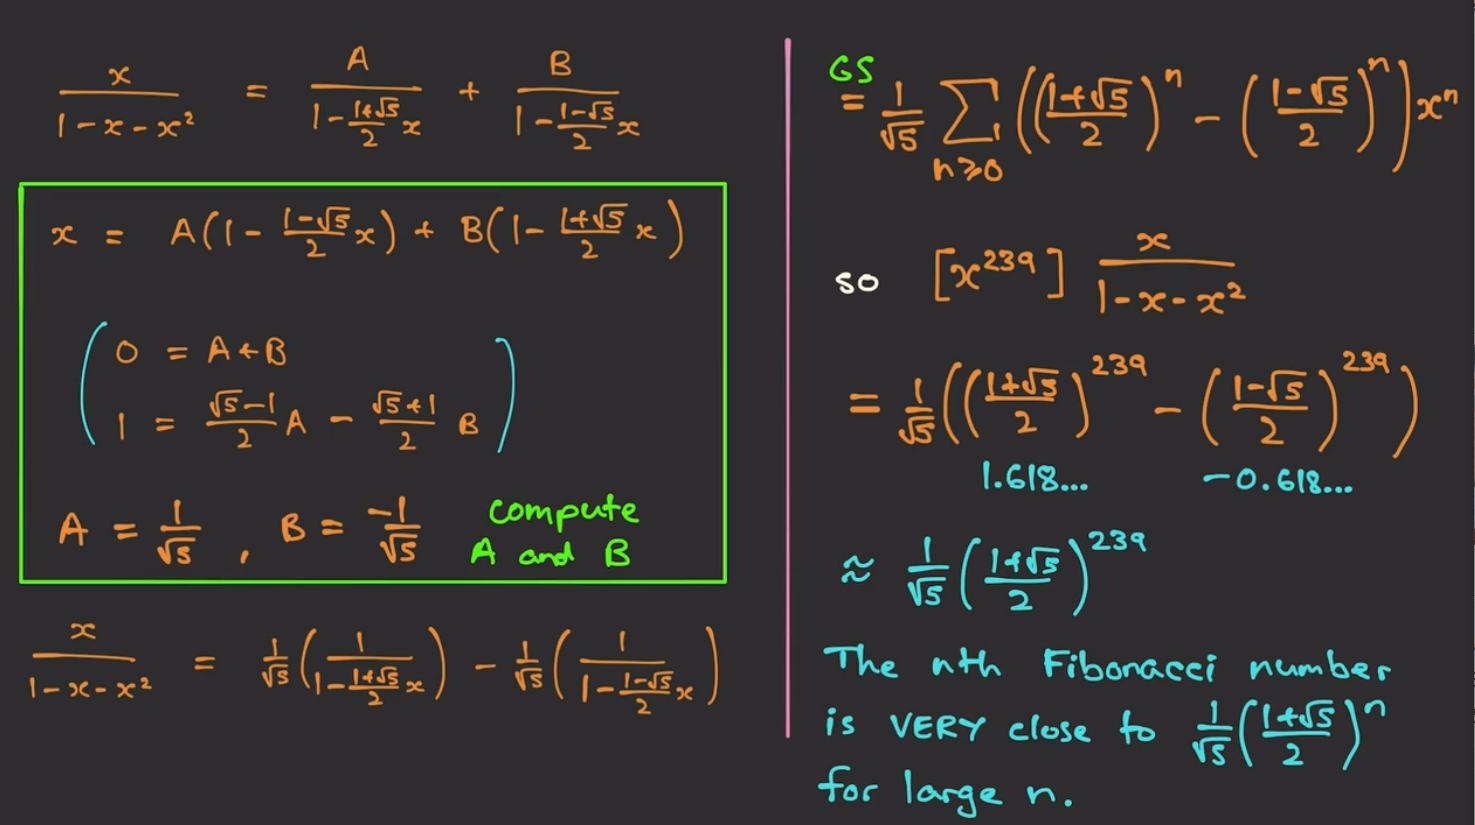 x/(1-x-x²) = A/(1-(1+√5)/2 x) + B/(1-(1-√5)/2 x)
x = A(1-(1-√5)/2 x) + B(1-(1+√5)/2 x)
0 = A+B
1 = (√5-1)/2 A - (√5+1)/2 B
A = 1/√5 , B = -1/√5
compute
A and B
x/(1-x-x²) = 1/√5 (1/(1-(1+√5)/2 x)) - 1/√5 (1/(1-(1-√5)/2 x))
GS
= 1/√5 ∑_{n≥0} (((1+√5)/2)ⁿ - ((1-√5)/2)ⁿ) xⁿ
so [x²³⁹] x/(1-x-x²)
= 1/√5 (((1+√5)/2)²³⁹ - ((1-√5)/2)²³⁹)
1.618... -0.618...
≈ 1/√5 ((1+√5)/2)²³⁹
The nth Fibonacci number
is VERY close to 1/√5 ((1+√5)/2)ⁿ
for large n.